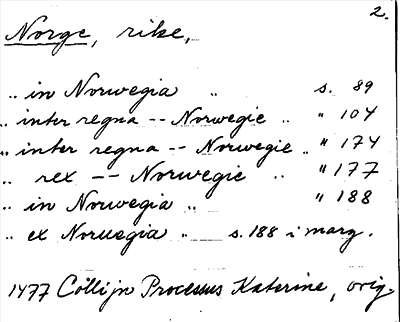 2.
Norge, rike,
„ in Norwegia „ s. 89
„ inter regna -- Norwegie „ " 104
„ inter regna -- Norwegie „ " 174
„ rex -- Norwegie „ " 177
„ in Norwegia „ " 188
„ ex Noruegia „ s. 188 i marg.
1477 Collijn Processus Katerine, orig.